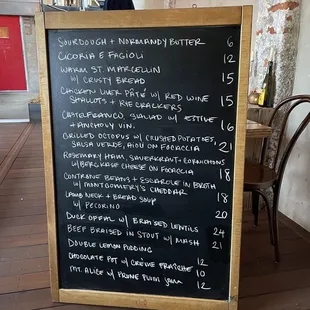 SOURDOUGH + NORMANDY BUTTER 6
CICORIA E FAGIOLI 12
WARM ST. MARCELLIN
W/ CRUSTY BREAD 15
CHICKEN LIVER PÂTÉ W/ RED WINE
SHALLOTS + RYE CRACKERS 15
CASTELFRANCO SALAD W/ ESTIVE
+ ANCHOVY VIN. 16
GRILLED OCTOPUS W/ CRUSHED POTATOES,
SALSA VERDE, AIOLI ON FOCACCIA 21
ROSEMARY HAM, SAUERKRAUT + CORNICHONS
W/ BERGKASE CHEESE ON FOCACCIA 18
BEANS + ESCAROLE IN BROTH
W/ MONTGOMERY'S CHEDDAR 18
LAMB NECK + BREAD SOUP
W/ PECORINO 20
DUCK OFFAL W/ BRAISED LENTILS 24
BEEF BRAISED IN STOUT W/ MASH 21
DOUBLE LEMON PUDDING 12
CHOCOLATE POT W/ CRÈME FRAÎCHE 10
MT. ALICE W/ PRUNE PLUM 12